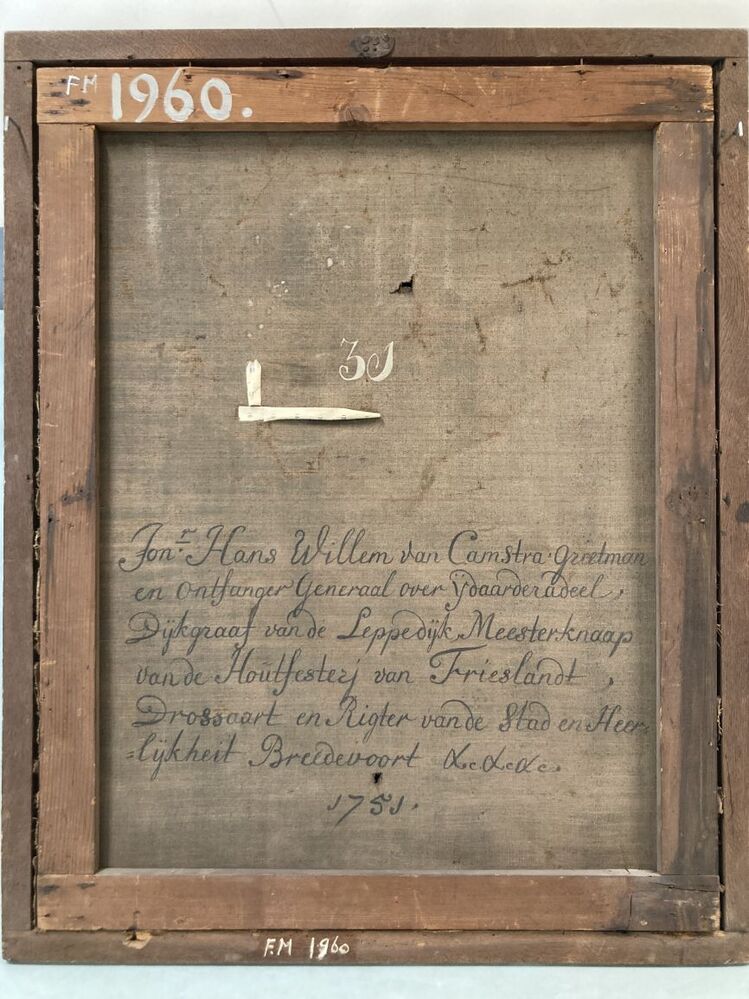 FM 1960.
31
Jon.r Hans Willem van Camstra Greetman
en Ontfanger Generaal over ÿdaarderadeel,
Dÿkgraaf vande Leppedÿk, Meesterknaap
vande Houtfesterj van Frieslandt,
Drossaart en Rigter vande Stad en Heer=
=lÿkheit Breedevoort &c &c &c.
1751.
F.M 1960